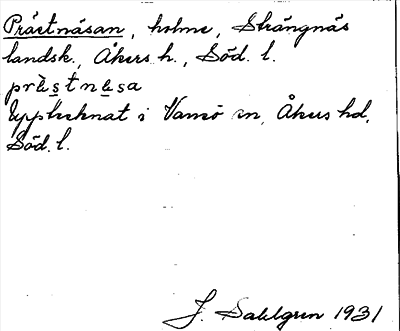 Prästnäsan, holme, Strängnäs
landsk., Åkers h., Söd. l.
prèstnesa
Upptecknat i Vansö sn, Åkers hd,
Söd. l.
J. Sahlgren 1931